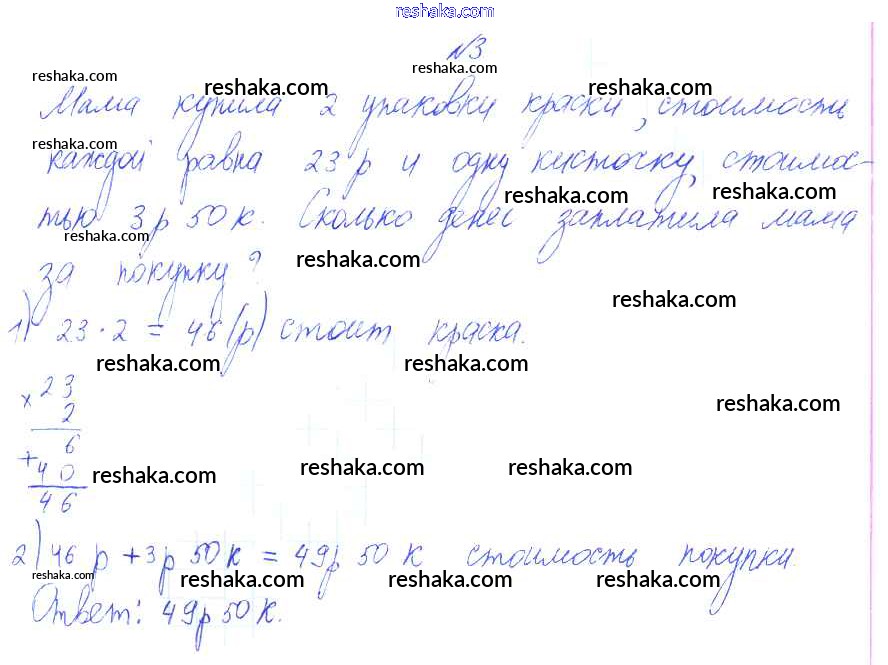 reshaka.com
№3
reshaka.com reshaka.com
reshaka.com reshaka.com
Мама купила 2 упаковки краски, стоимость
reshaka.com
каждой равна 23 р и одну кисточку, стоимос-
reshaka.com reshaka.com
тью 3 р 50 к. Сколько денег заплатила мама
reshaka.com
за покупку?
reshaka.com
reshaka.com
1) 23 · 2 = 46 (р) стоит краска.
reshaka.com reshaka.com
× 23
2
reshaka.com
6
+ 40
reshaka.com reshaka.com reshaka.com
46
2) 46 р + 3 р 50 к = 49 р 50 к стоимость покупки.
reshaka.com reshaka.com reshaka.com reshaka.com
Ответ: 49 р 50 к.